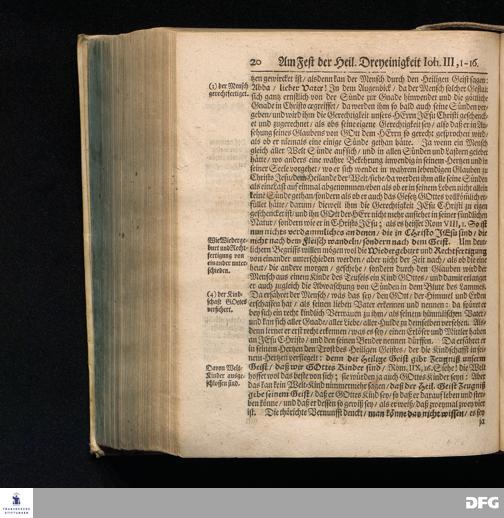 20 Am Fest der Heil. Dreyeinigkeit Ioh. III, 1-16.
gen gewircket ist / alsdenn kan der Mensch durch den Heiligen Geist sagen:
(3) der Mensch
gerechtfertiget.
Abba / lieber Vater! In dem Augenblick / da der Mensch solcher Gestalt
sich gantz ernstlich von der Sünde zur Gnade hinwendet und die göttliche
Gnade in Christo ergreiffet / da werden ihm so bald auch seine Sünden ver-
geben / und wird ihm die Gerechtigkeit unsers HErrn JEsu Christi geschenckt
und zugerechnet / als obs seine eigene Gerechtigkeit sey / also daß er in An-
sehung seines Glaubens von GOtt dem HErrn so gerecht gesprochen wird /
als ob er niemals eine einige Sünde gethan hätte. Ja wenn ein Mensch
gleich aller Welt Sünde auf sich / und in allen Sünden und Lastern gelebet
hätte / wo anders eine wahre Bekehrung inwendig in seinem Hertzen und in
seiner Seele vorgehet / wo er sich wendet in wahrem lebendigen Glauben zu
Christo Jesu / dem Heilande der Welt / siehe / da werden ihm alle seine Sünden
als eine Last auf einmal abgenommen / eben als ob er in seinem Leben nicht allein
keine Sünde gethan / sondern als ob er auch das Gesetz GOttes vollkömlich er-
füllet hätte / darum / dieweil ihm die Gerechtigkeit JEsu Christi zu eigen
geschencket ist / und ihn GOtt der HErr nicht mehr ansiehet in seiner sündlichen
Natur / sondern wie er in Christo JEsu; als es heisset Rom VIII, 1. So ist
nun nichts verdammliches an denen / die in Christo JEsu sind / die
Wie Wiederge-
burt und Recht-
fertigung von
einander unter-
schieden.
nicht nach dem Fleisch wandeln / sondern nach dem Geist. Um deut-
lichern Begriffs willen mögen wol die Wiedergeburt und Rechtfertigung
von einander unterschieden werden / aber nicht der Zeit nach / als ob die eine
heut / die andere morgen / geschehe / sondern durch den Glauben wird der
Mensch aus einem Kinde des Teufels ein Kind GOttes / und damit erlanget
er auch zugleich die Abwaschung von Sünden in dem Blute des Lammes.
(4) der Kind-
schaft GOttes
versichert.
Da erfähret der Mensch / was das sey / den GOtt / der Himmel und Erden
erschaffen hat / als seinen lieben Vater erkennen und nennen: da schöpfet er
bey sich ein recht kindlich Vertrauen zu ihm / als seinem himmlischen Vater /
und kan sich aller Gnade / aller Liebe / aller Hulde zu demselben versehen. Als-
denn lernet er erst recht erkennen / was es sey / einen Erlöser und Mittler haben
an JEsu Christo / und den seinen Bruder nennen dürffen. Da erfähret er
in seinem Hertzen den Trost des Heiligen Geistes / der die Kindschafft in sei-
nem Hertzen versiegelt: denn der Heilige Geist gibt Zeugniß unserm
Davon Welt-
Kinder ausge-
schlossen sind.
Geist / daß wir GOttes Kinder sind / Rom. IIX, 16. Siehe! die Welt
hoffet wol das beste von sich; sie würden ja auch GOttes Kinder seyn: Aber
das kan kein Welt-Kind nimmermehr sagen / daß der Heil. Geist Zeugniß
gibe seinem Geist / daß er GOttes Kind sey / so daß er darauf leben und ster-
ben könne / und daß er dessen so gewiß sey / als er weiß / daß zweymal zwey vier
ist. Die thörichte Vernunfft denckt / man könne das nicht wissen / es sey
ja
DFG